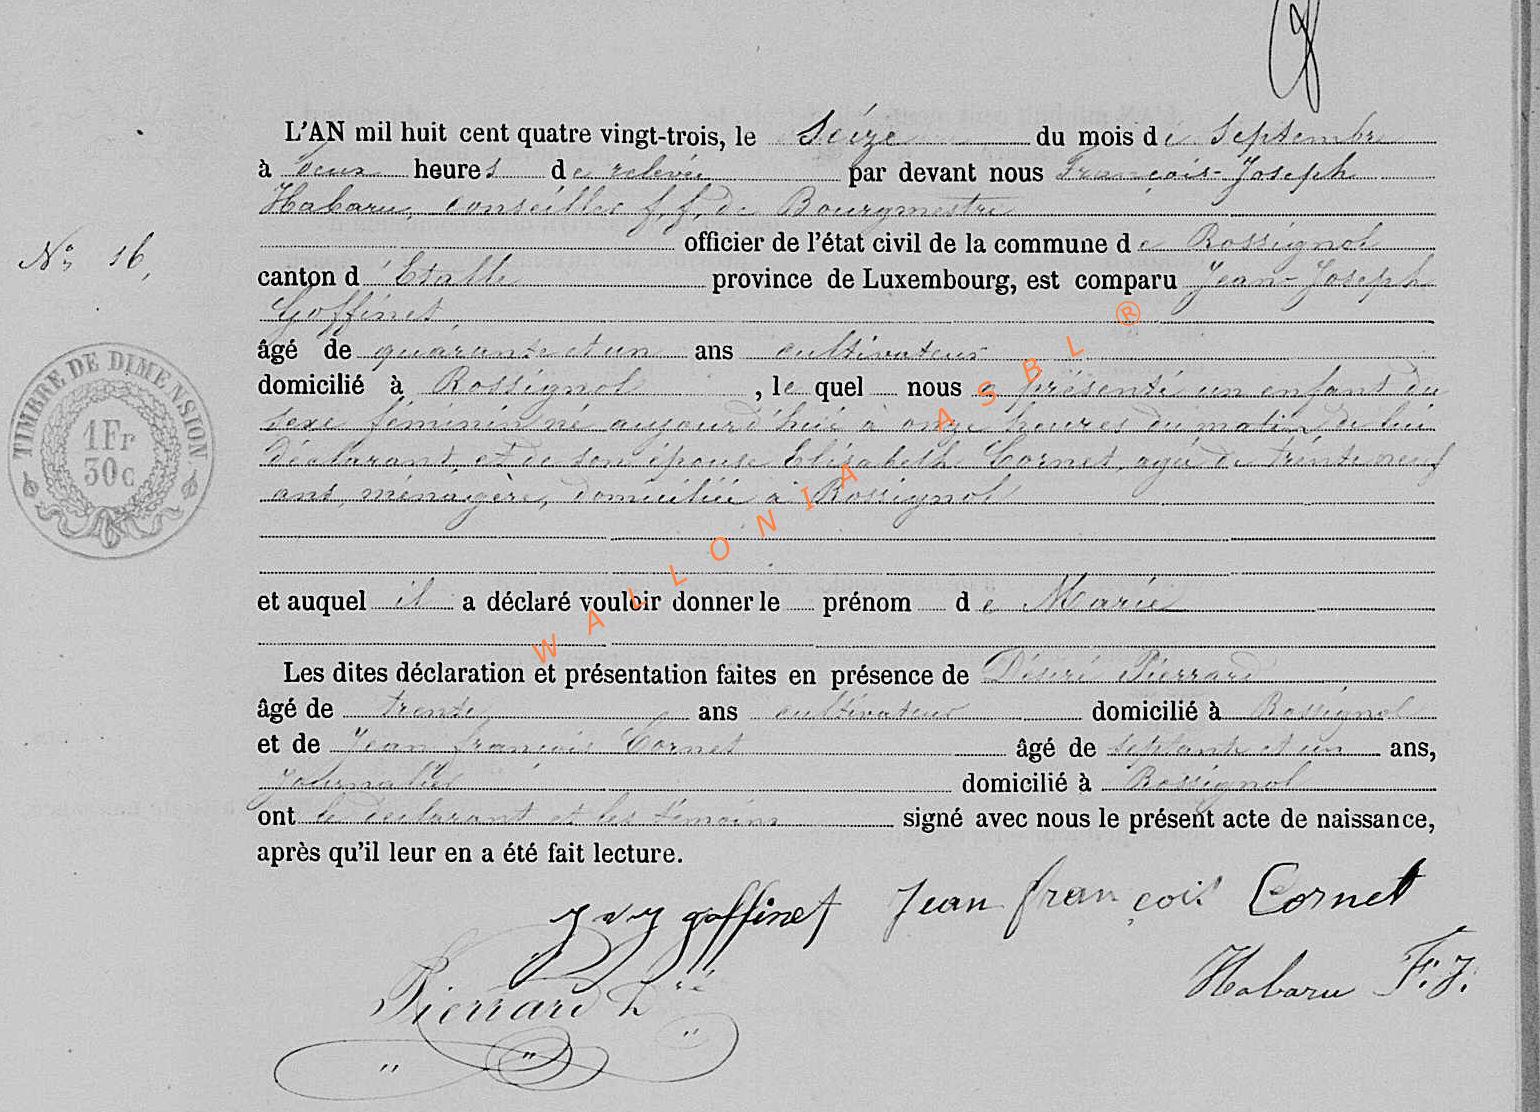 L'AN mil huit cent quatre vingt-trois, le Seize du mois de Septembre
à deux heures de relevée par devant nous François-Joseph
Habaru, conseiller f.f. de Bourgmestre
officier de l'état civil de la commune de Rossignol
N° 16,
canton d'Etalle province de Luxembourg, est comparu Jean-Joseph
Goffinet
âgé de quarante et un ans cultivateur
domicilié à Rossignol, le quel nous a présenté un enfant du
sexe féminin né aujourd'hui à onze heures du matin de lui
déclarant, et de son épouse Elisabeth Cornet, agée de trente neuf
ans, ménagère, domiciliée à Rossignol
TIMBRE DE DIMENSION
1Fr
30c
et auquel il a déclaré vouloir donner le prénom de Marie
Les dites déclaration et présentation faites en présence de Désiré Pierrard
âgé de trente ans cultivateur domicilié à Rossignol
et de Jean François Cornet âgé de septante et un ans,
Journalier domicilié à Rossignol
ont le déclarant et les témoins signé avec nous le présent acte de naissance,
après qu'il leur en a été fait lecture.
goffinet Jean françois Cornet
Pierrard Dré
Habaru F.J.
WALLONIA ASBL ®